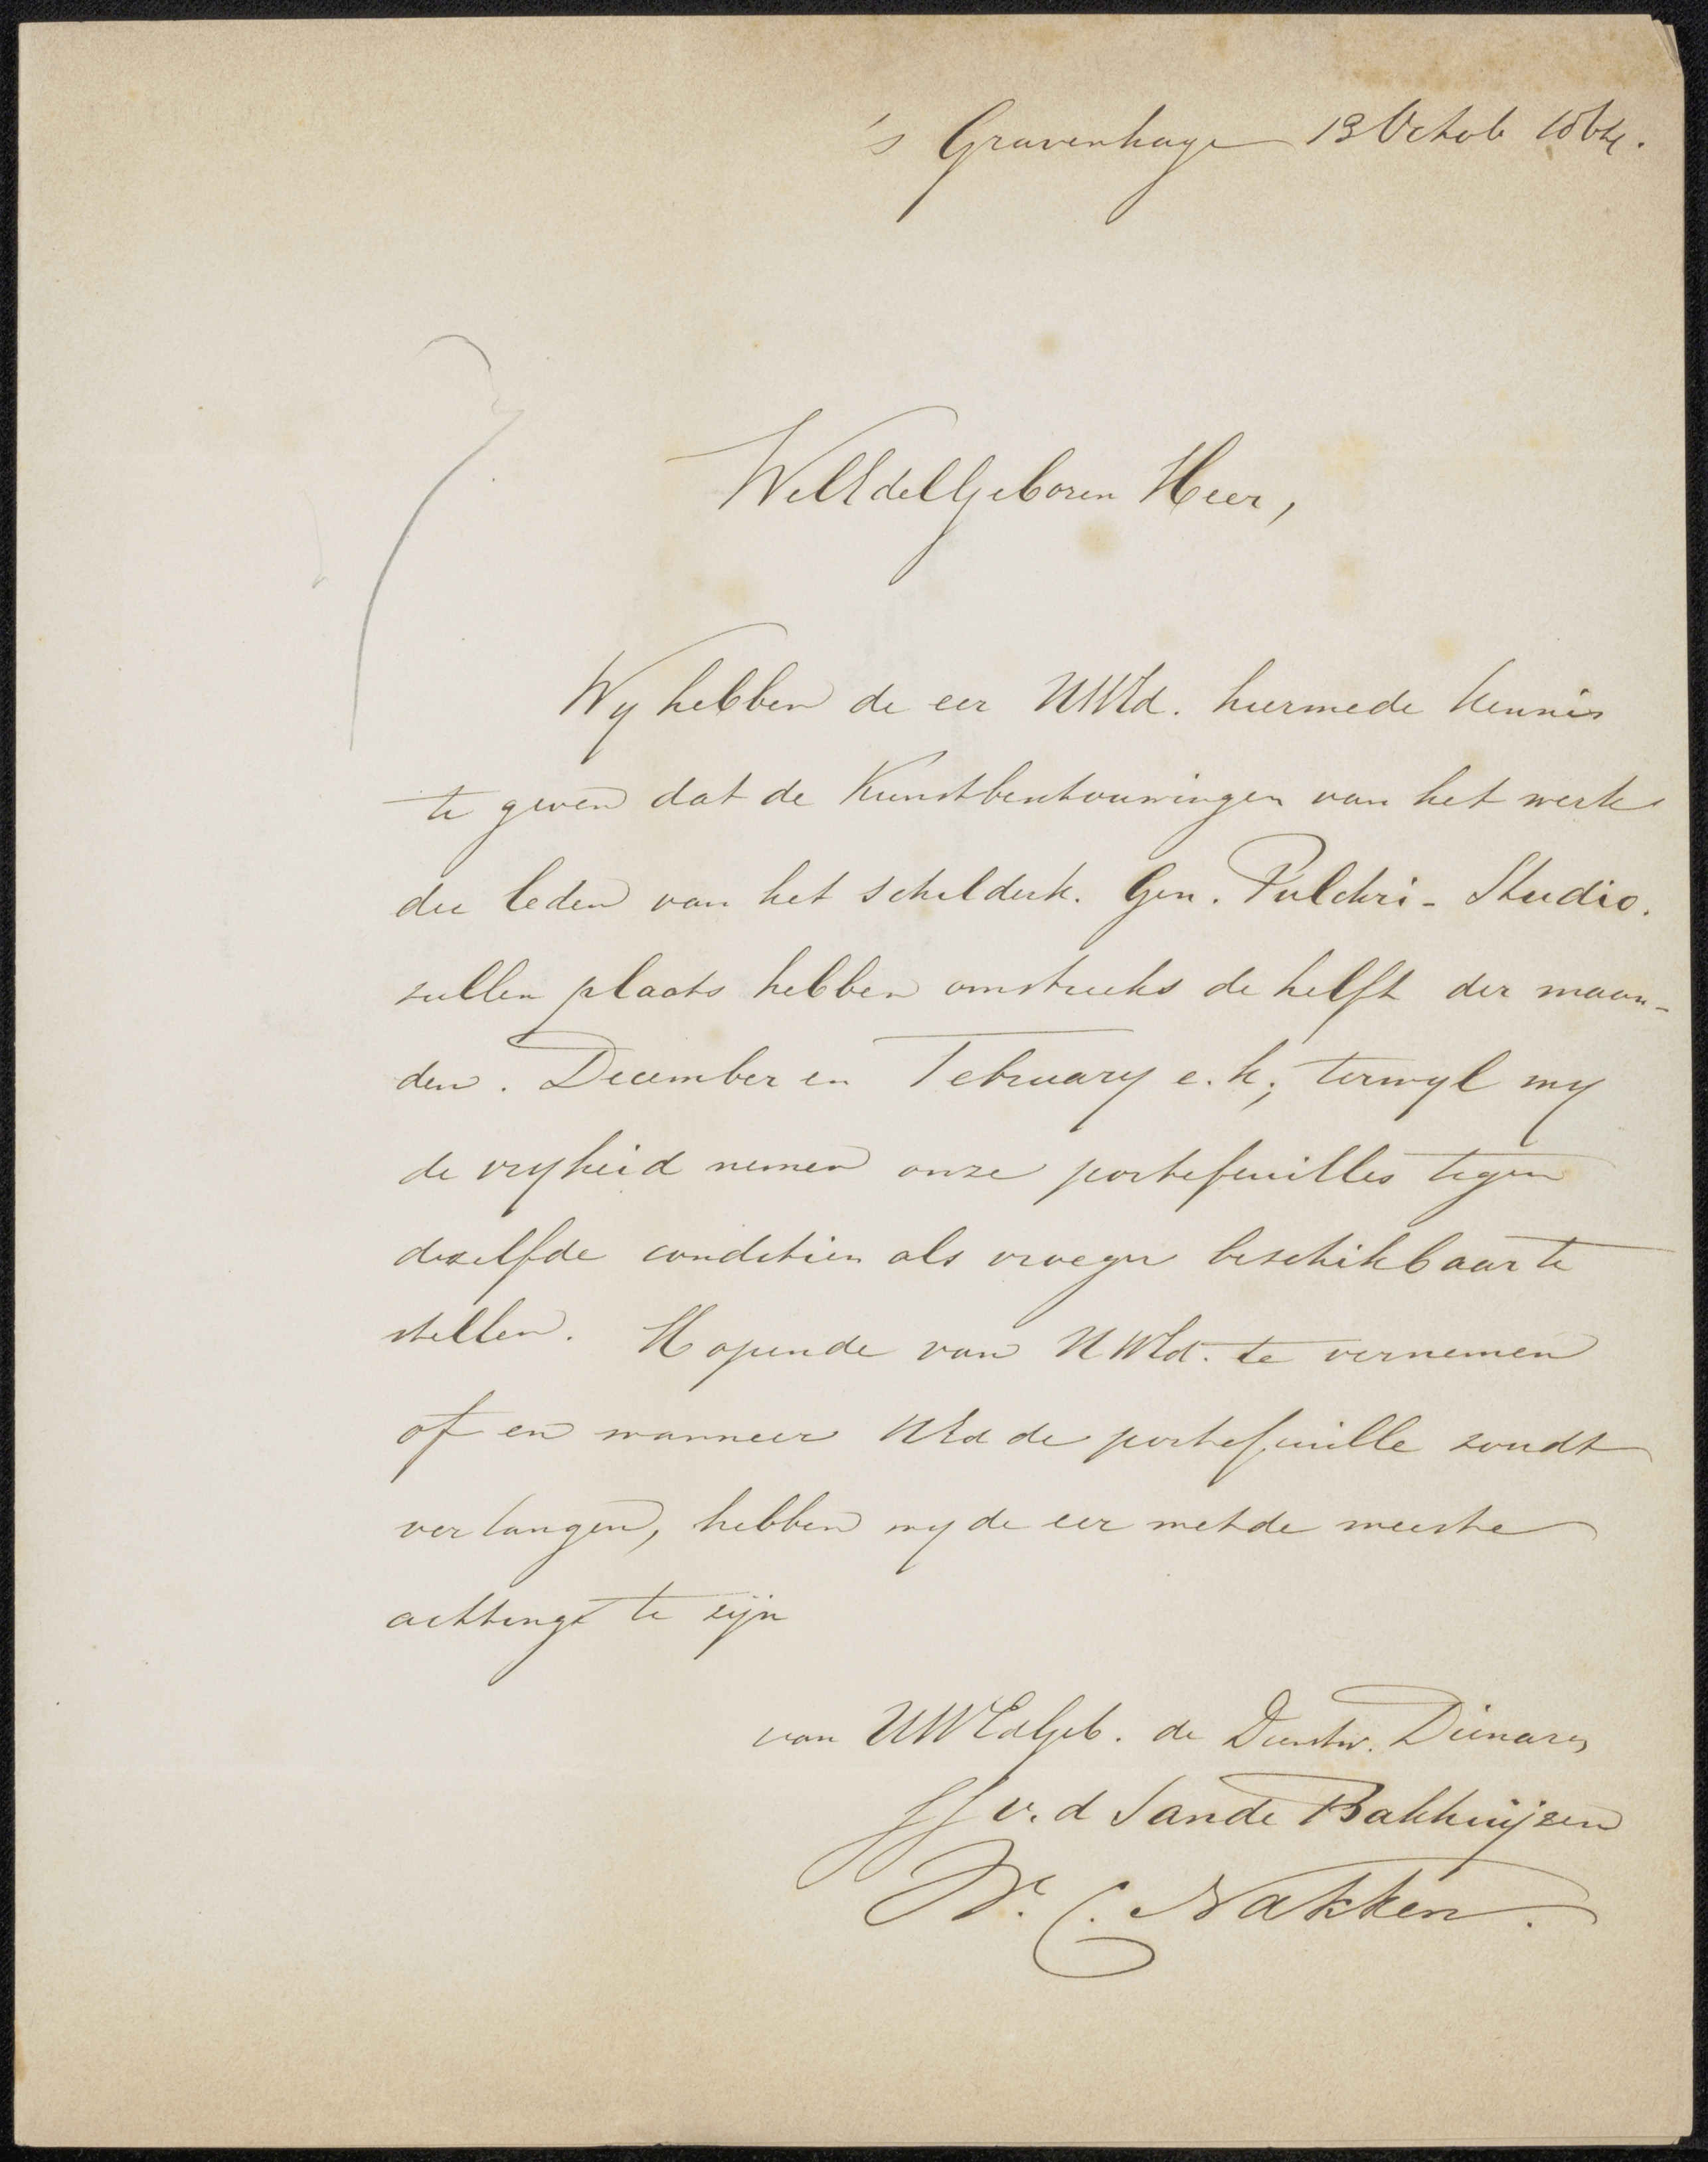 's Gravenhage 13 Octob 1864.
WelEdelGeboren Heer,
Wy hebben de eer UWEd. hiermede kennis
te geven dat de Kunstbeschouwingen van het werk
der leden van het schilderk. Gen. Pulchri-Studio.
zullen plaats hebben omstreeks de helft der maan-
den. December en February e.k; terwyl wy
de vryheid nemen onze portefeuilles tegen
dezelfde conditien als vroeger beschikbaar te
stellen. Hopende van UWEd. te vernemen
of en wanneer UEd de portefeuille zoudt
verlangen, hebben wy de eer met de meeste
achting te zijn
van UWEdGeb. de Dienstw. Dienaren
JJ v. d Sande Bakhuijzen
W. C. Nakken.